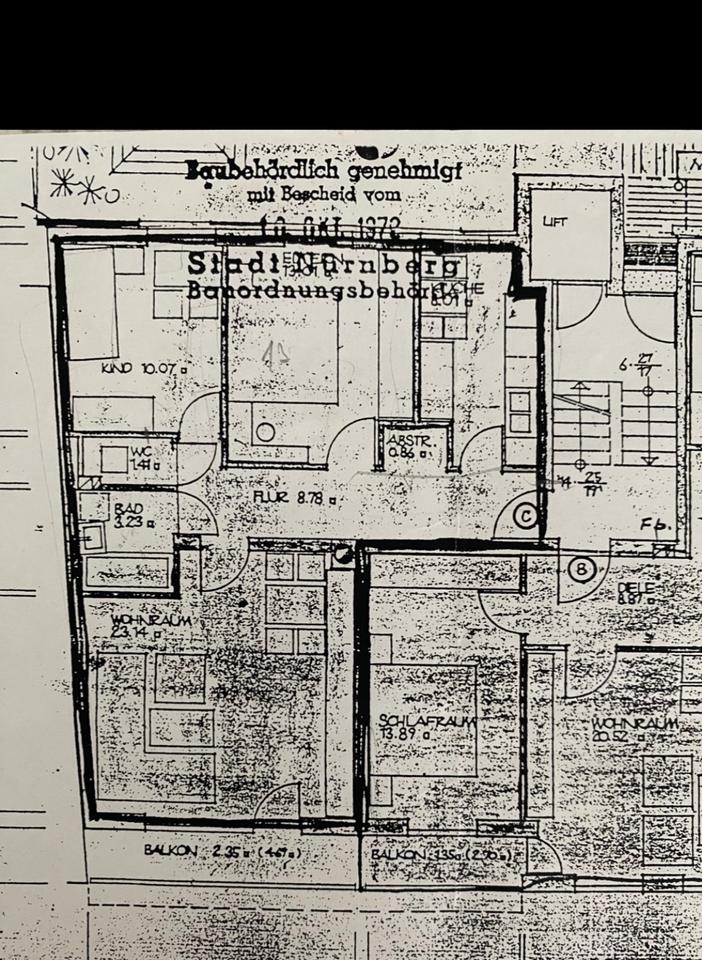 Baubehördlich genehmigt
mit Bescheid vom
10. OKT. 1972
Stadt Nürnberg
Bauordnungsbehörde
LIFT
ELTERN
KÜCHE
8.01 □
KIND 10.07 □
6 27/17
WC
1.41 □
ABSTR.
0.86 □
BAD
3.23 □
FLUR 8.78 □
C
14 25/19
Fb.
B
DIELE
8.87 □
WOHNRAUM
23.14 □
SCHLAFRAUM
13.89 □
WOHNRAUM
20.52 □
BALKON 2.35 □ (4.69 □)
BALKON 1.35 □ (2.70 □)